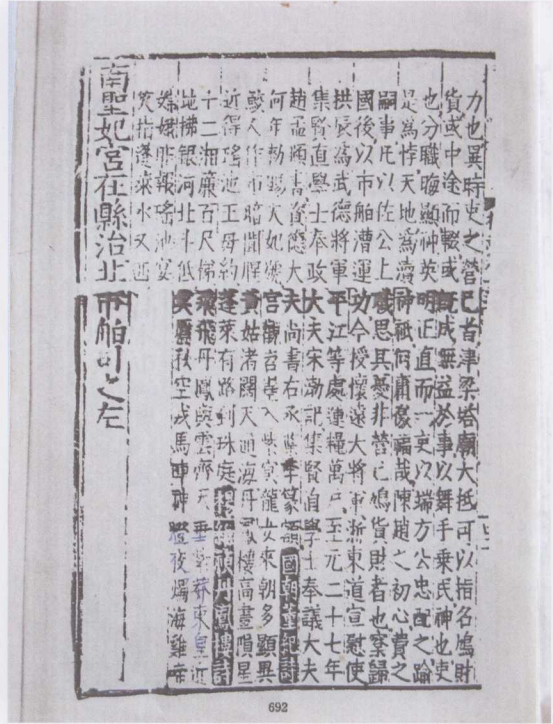 力也異時史之營己首津梁塔廟大抵可以指名鳩財
貨或中途而輟或既成無益於事以舞手乗氏神也吏
也分職晦顯神英明正直而一吏以端方公忠配之踰
是為悖天地為瀆神祇何庸像端哉陳趙之初心費之
嗣事凡以佐公上思其憂非營己鳩貨財者也寮歸
國後以市舶漕運功今授懷遠大將軍浙東道宣慰使
拱辰為武德將軍平江等處運糧萬戶至元二十七年
集賢直學士奉政大夫宋渤記集賢直學士奉議大夫
趙孟頫書資德大夫尚書右丞葉李篆額國朝董紀詩
何年勑賜天妃號宮觀岧嶤入紫冥龍女來朝多顯異
鮫人作市暗聞腥黃姑渚闊天通海丹鳳樓高晝隕星
近得瑤池王母約蓬萊有路到珠庭楊維禎丹鳳樓詩
十二湘簾百尺梯飛飛丹鳳與雲齊天垂莽東皇近
地拂銀河北斗低秋空戎馬神燈夜燭海雞啼
嫦娥昨報瑤池宴
笑指蓬萊水又西
南聖妃宮在縣治北市舶司之左
692